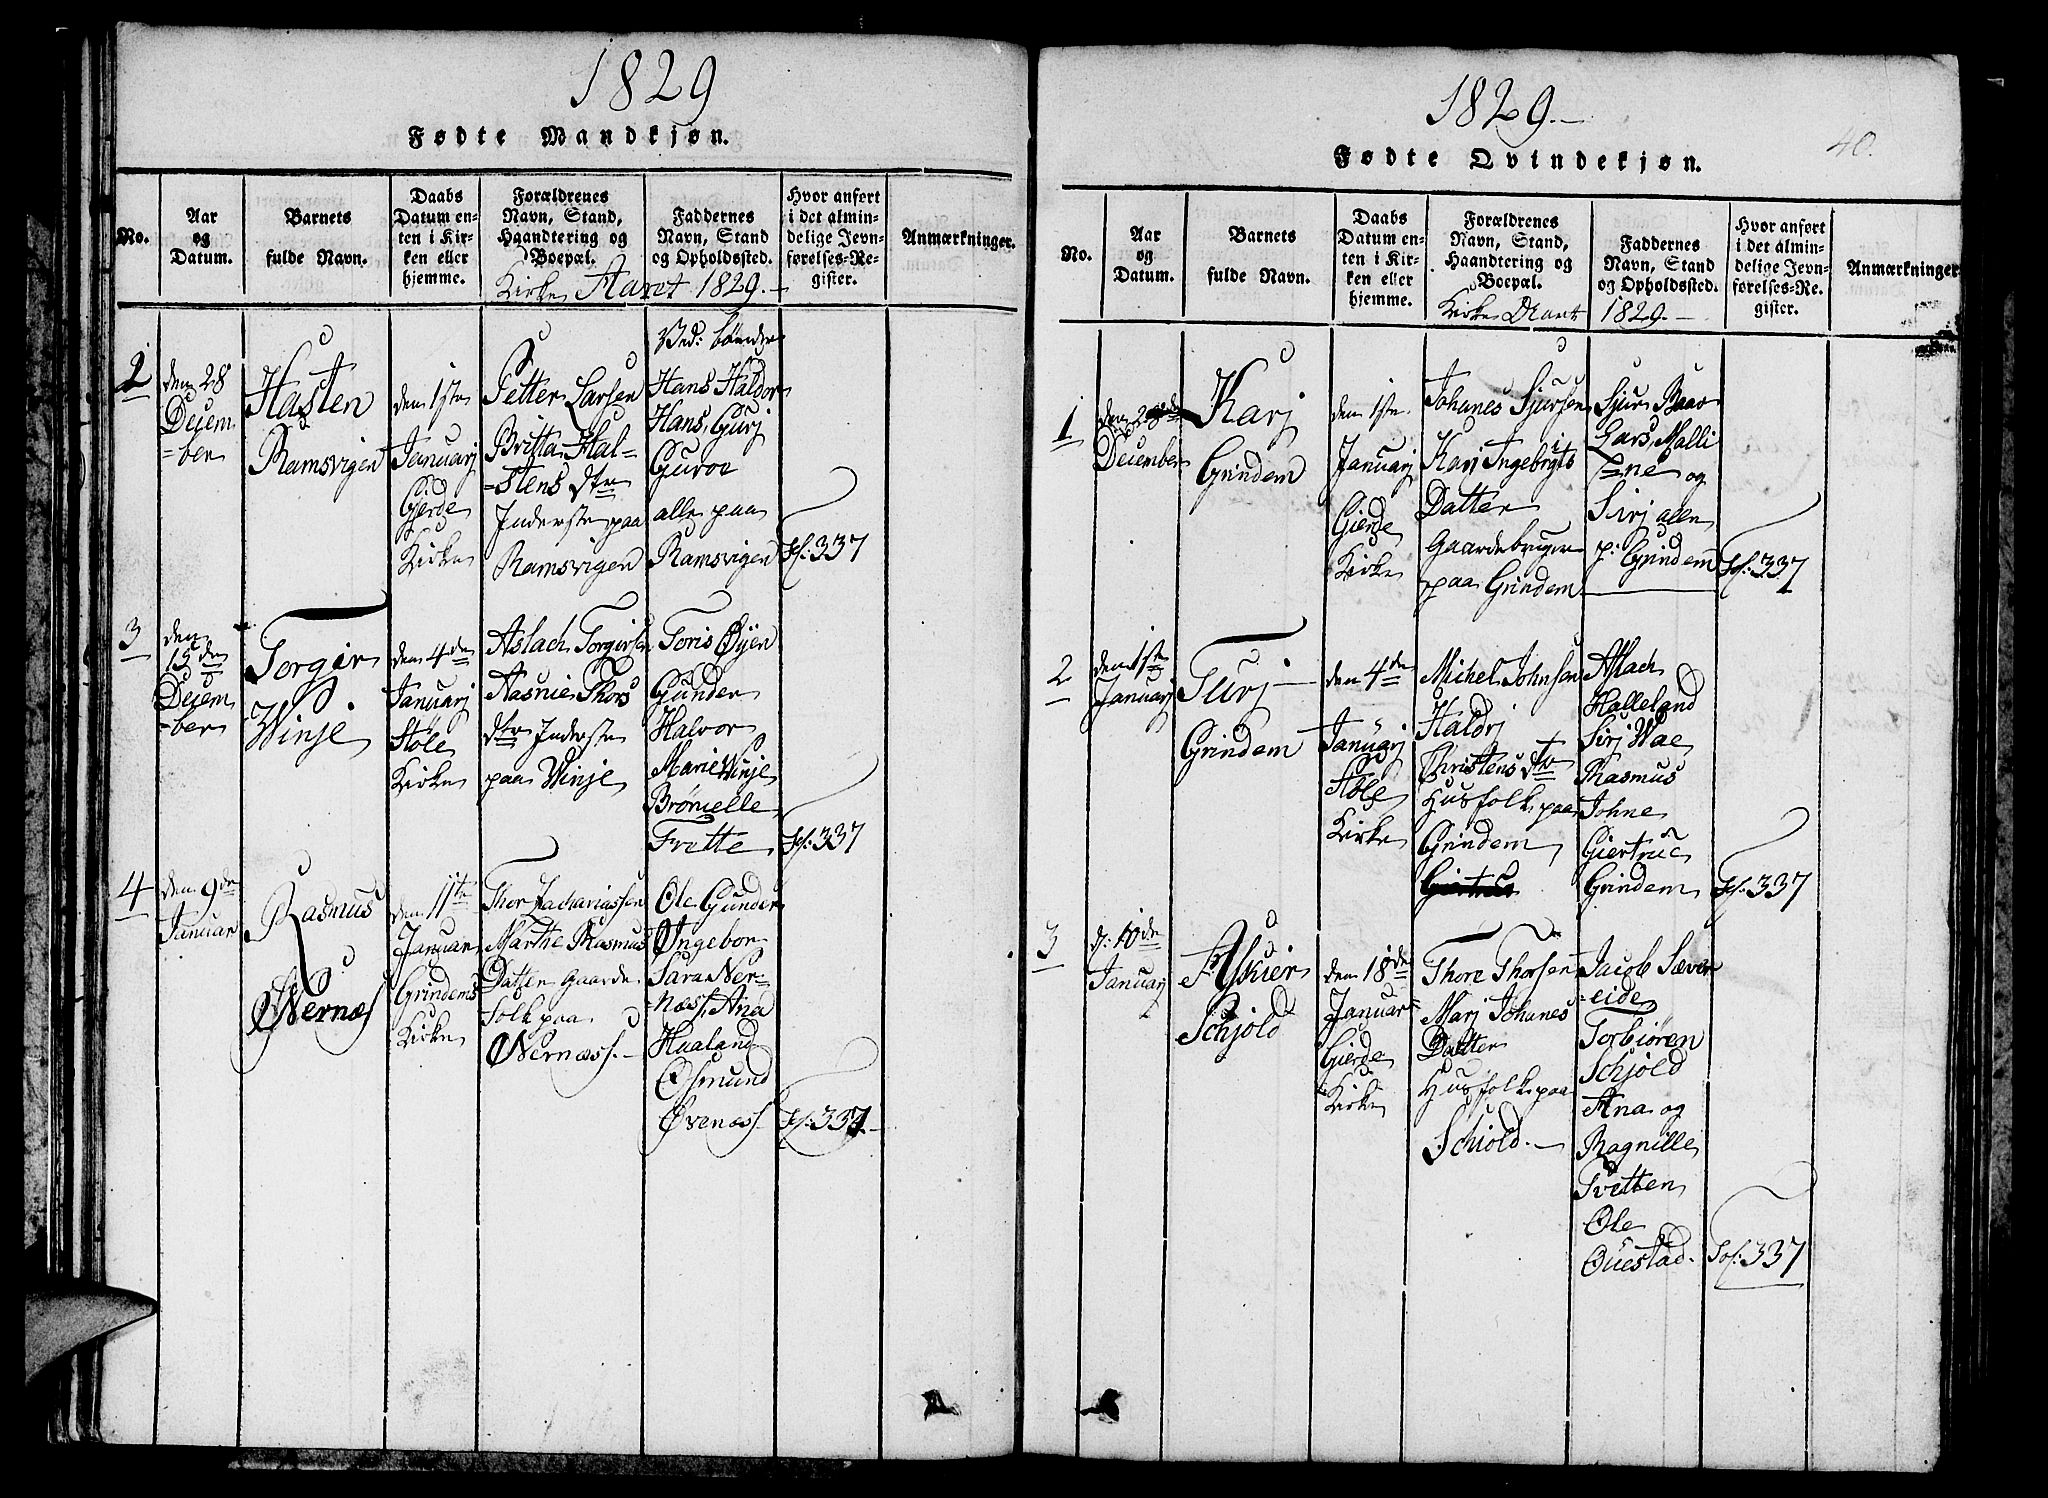 1829
Fødte Mandkjøn.
No.
Aar
og
Datum.
Barnets
fulde Navn.
Daabs
Datum en-
ten i Kir-
ken eller
hjemme.
Forældrenes
Navn, Stand,
Haandtering og
Boepæl.
Faddernes
Navn, Stand
og Opholdssted.
Hvor anført
i det almin-
delige Jevn-
førelses-Re-
gister.
Anmærkninger.
Kirke Aaret 1829.-
2
den 28
Decem
=ber
Hasten
Ramsvigen
den 1ste
Januarj
Gjerde
Kirke
Petter Larsen
Britta Hal-
=stens dtr
Inderste paa
Ramsvigen
Ved: bönder
Hans Haldor
Hans, Gurj
Guroe
alle paa
Ramsvigen
Fol: 337
3
den
15de
Decem
=ber
Torgier
Winje
den 4de
Januarj
Höle
Kirke
Aslach Torgiersen
Aasnie Thors
dtr Inderste
paa Winje
Toris Øyen
Gunder
Halvor
Marie Winje
Brönielle
Tvette
Fol: 337
4
den 9de
Januar
Rasmus
Øvernæs
den 11te
Januar
Grindems
Kirke
Thor Zachariassen
Marthe Rasmus
Datter Gaard-
folk paa
Øvernæss.-
Ole Gunder
Ingebor
Sara Ver-
=næs, Ana
Hualand
Osmund
Øvenæs.
Fol: 337.-
1829.-
40.
Fødte Qvindekjøn.
No.
Aar
og
Datum.
Barnets
fulde Navn.
Daabs
Datum en-
ten i Kir-
ken eller
hjemme.
Forældrenes
Navn, Stand,
Haandtering og
Boepæl.
Faddernes
Navn, Stand
og Opholdssted.
Hvor anført
i det almin-
delige Jevn-
førelses-Re-
gister.
Anmærkninger
Kirke Aaret 1829.-
1
den
December
Karj
Grindem
den 1ste
Januarj
Gierde
Kirke
Johanes Sjursen
Karj Ingebrigts
Datter
Gaardebruger
paa Grindem
Sjur Baar
Lars, Malli
=ne og
Sirj alle
p: Grindem
Fol: 337
2
den 1ste
Januarj
Turj
Grindem
den 4de
Januarj
Höle
Kirke
Michel Johnsen
Haldrj
Christens dtr
Husfolk paa
Grindem
Aslach
Halleland
Sirj Wae
Rasmus
Johne
Giertrue
Grindem
Fol: 337
3
d: 10de
Januarj
Askier
Schjold
den 18de
Januar
Gierde
Kirke
Thore Thorsen
Marj Johanes
Datter
Husfolk paa
Schiold.-
Jacob Sæver
=eide
Torbiören
Schjold
Ana og
Ragnille
Tvetten
Ole
Øuestad.
Fol: 337